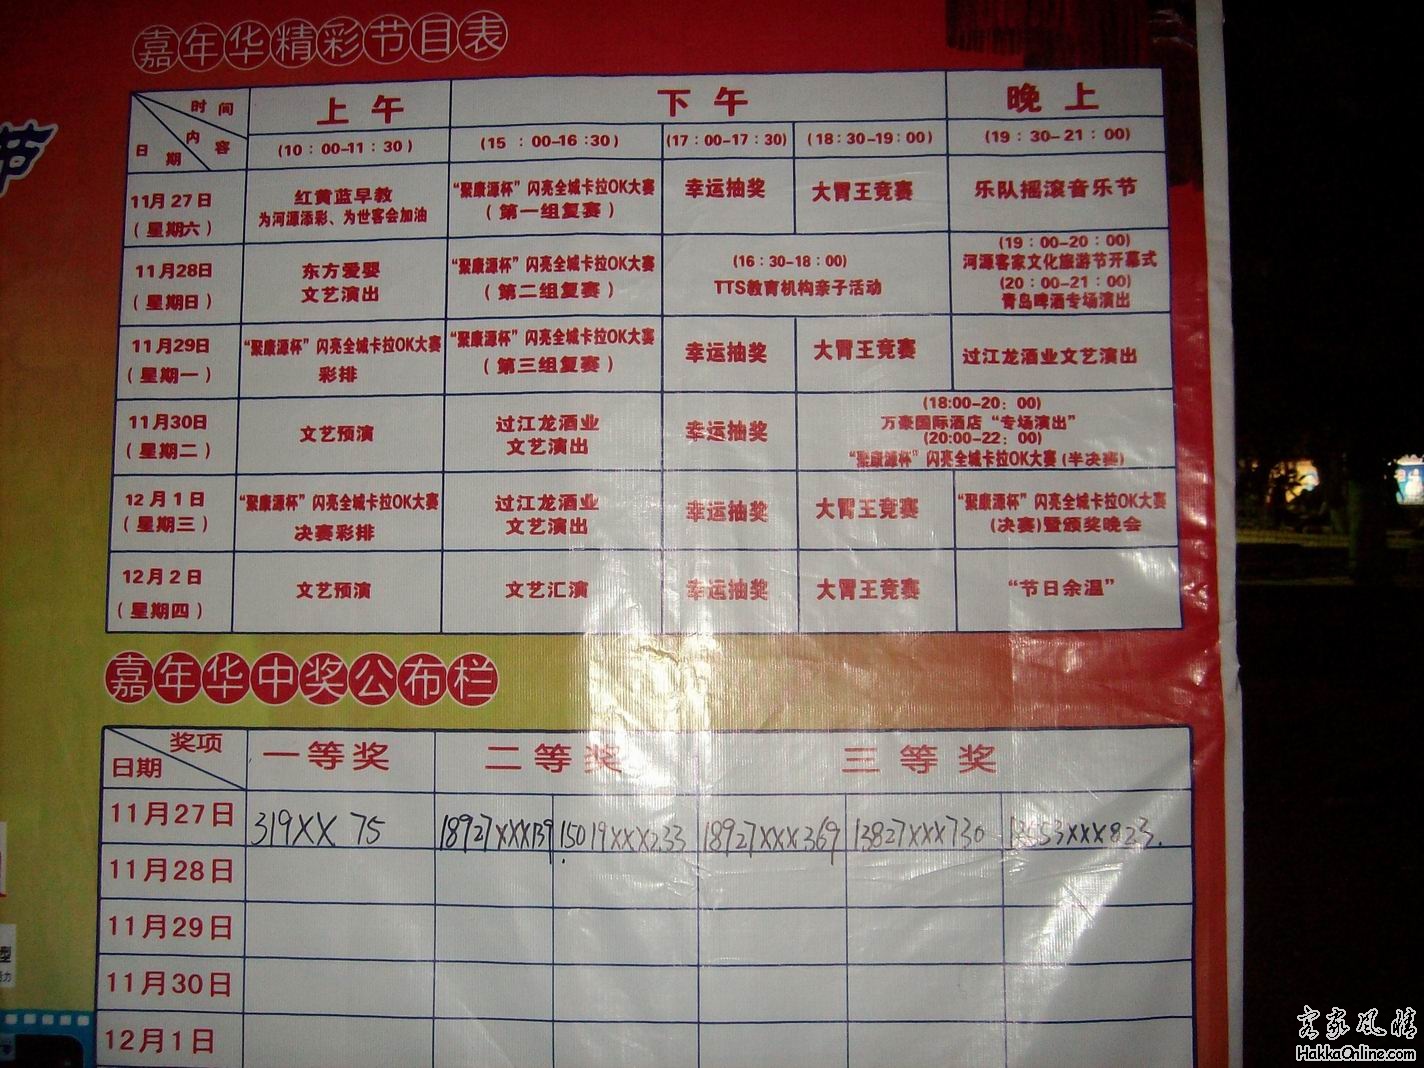 嘉年华精彩节目表
时间
内容
日期
上午
下午
晚上
(10：00-11：30)
(15：00-16:30)
(17：00-17：30)
(18：30-19：00)
(19：30-21：00)
11月27日
(星期六)
红黄蓝早教
为河源添彩、为世客会加油
“聚康源杯”闪亮全城卡拉OK大赛
(第一组复赛)
幸运抽奖
大胃王竞赛
乐队摇滚音乐节
11月28日
(星期日)
东方爱婴
文艺演出
“聚康源杯”闪亮全城卡拉OK大赛
(第二组复赛)
(16：30-18：00)
TTS教育机构亲子活动
(19：00-20：00)
河源客家文化旅游节开幕式
(20：00-21：00)
青岛啤酒专场演出
11月29日
(星期一)
“聚康源杯”闪亮全城卡拉OK大赛
彩排
“聚康源杯”闪亮全城卡拉OK大赛
(第三组复赛)
幸运抽奖
大胃王竞赛
过江龙酒业文艺演出
11月30日
(星期二)
文艺预演
过江龙酒业
文艺演出
幸运抽奖
(18:00-20：00)
万豪国际酒店“专场演出”
(20:00-22：00)
“聚康源杯”闪亮全城卡拉OK大赛(半决赛)
12月1日
(星期三)
“聚康源杯”闪亮全城卡拉OK大赛
决赛彩排
过江龙酒业
文艺演出
幸运抽奖
大胃王竞赛
“聚康源杯”闪亮全城卡拉OK大赛
(决赛)暨颁奖晚会
12月2日
(星期四)
文艺预演
文艺汇演
幸运抽奖
大胃王竞赛
“节日余温”
嘉年华中奖公布栏
奖项
日期
一等奖
二等奖
三等奖
11月27日
319XX 75
18927XXX139
15019XXX233
18927XXX369
13827XXX730
11月28日
11月29日
11月30日
12月1日
节
型
客家风情
HakkaOnline.com